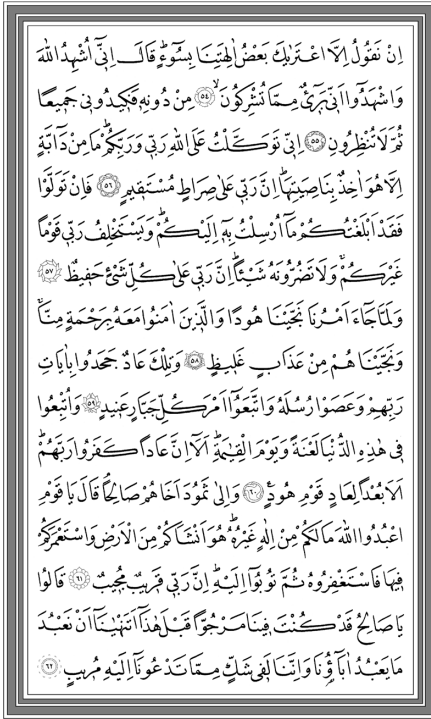 اِنْ نَقُولُ اِلَّا اعْتَرٰيكَ بَعْضُ اٰلِهَتِنَا بِسُٓوءٍۜ قَالَ اِنّ۪ٓي اُشْهِدُ اللّٰهَ
وَاشْهَدُٓوا اَنّ۪ي بَر۪ٓيءٌ مِمَّا تُشْرِكُونَۙ ﴿٥٤﴾ مِنْ دُونِه۪ فَك۪يدُون۪ي جَم۪يعًا
ثُمَّ لَا تُنْظِرُونِ ﴿٥٥﴾ اِنّ۪ي تَوَكَّلْتُ عَلَى اللّٰهِ رَبّ۪ي وَرَبِّكُمْۜ مَا مِنْ دَٓابَّةٍ
اِلَّا هُوَ اٰخِذٌ بِنَاصِيَتِهَاۜ اِنَّ رَبّ۪ي عَلٰى صِرَاطٍ مُسْتَق۪يمٍ ﴿٥٦﴾ فَاِنْ تَوَلَّوْا
فَقَدْ اَبْلَغْتُكُمْ مَٓا اُرْسِلْتُ بِه۪ٓ اِلَيْكُمْۜ وَيَسْتَخْلِفُ رَبّ۪ي قَوْمًا
غَيْرَكُمْۚ وَلَا تَضُرُّونَهُ شَيْـًٔاۜ اِنَّ رَبّ۪ي عَلٰى كُلِّ شَيْءٍ حَف۪يظٌ ﴿٥٧﴾
وَلَمَّا جَٓاءَ اَمْرُنَا نَجَّيْنَا هُودًا وَالَّذ۪ينَ اٰمَنُوا مَعَهُ بِرَحْمَةٍ مِنَّاۚ
وَنَجَّيْنَاهُمْ مِنْ عَذَابٍ غَل۪يظٍ ﴿٥٨﴾ وَتِلْكَ عَادٌ جَحَدُوا بِاٰيَاتِ
رَبِّهِمْ وَعَصَوْا رُسُلَهُ وَاتَّبَعُٓوا اَمْرَ كُلِّ جَبَّارٍ عَن۪يدٍ ﴿٥٩﴾ وَاُتْبِعُوا
ف۪ي هٰذِهِ الدُّنْيَا لَعْنَةً وَيَوْمَ الْقِيٰمَةِۜ اَلَٓا اِنَّ عَادًا كَفَرُوا رَبَّهُمْۜ
اَلَا بُعْدًا لِعَادٍ قَوْمِ هُودٍ۟ ﴿٦٠﴾ وَاِلٰى ثَمُودَ اَخَاهُمْ صَالِحًاۢ قَالَ يَا قَوْمِ
اعْبُدُوا اللّٰهَ مَا لَكُمْ مِنْ اِلٰهٍ غَيْرُهُۜ هُوَ اَنْشَاَكُمْ مِنَ الْاَرْضِ وَاسْتَعْمَرَكُمْ
ف۪يهَا فَاسْتَغْفِرُوهُ ثُمَّ تُوبُٓوا اِلَيْهِۜ اِنَّ رَبّ۪ي قَر۪يبٌ مُج۪يبٌ ﴿٦١﴾ قَالُوا
يَا صَالِحُ قَدْ كُنْتَ ف۪ينَا مَرْجُوًّا قَبْلَ هٰذَٓا اَتَنْهٰينَٓا اَنْ نَعْبُدَ
مَا يَعْبُدُ اٰبَٓاؤُ۬نَا وَاِنَّنَا لَف۪ي شَكٍّ مِمَّا تَدْعُونَٓا اِلَيْهِ مُر۪يبٍ ﴿٦٢﴾